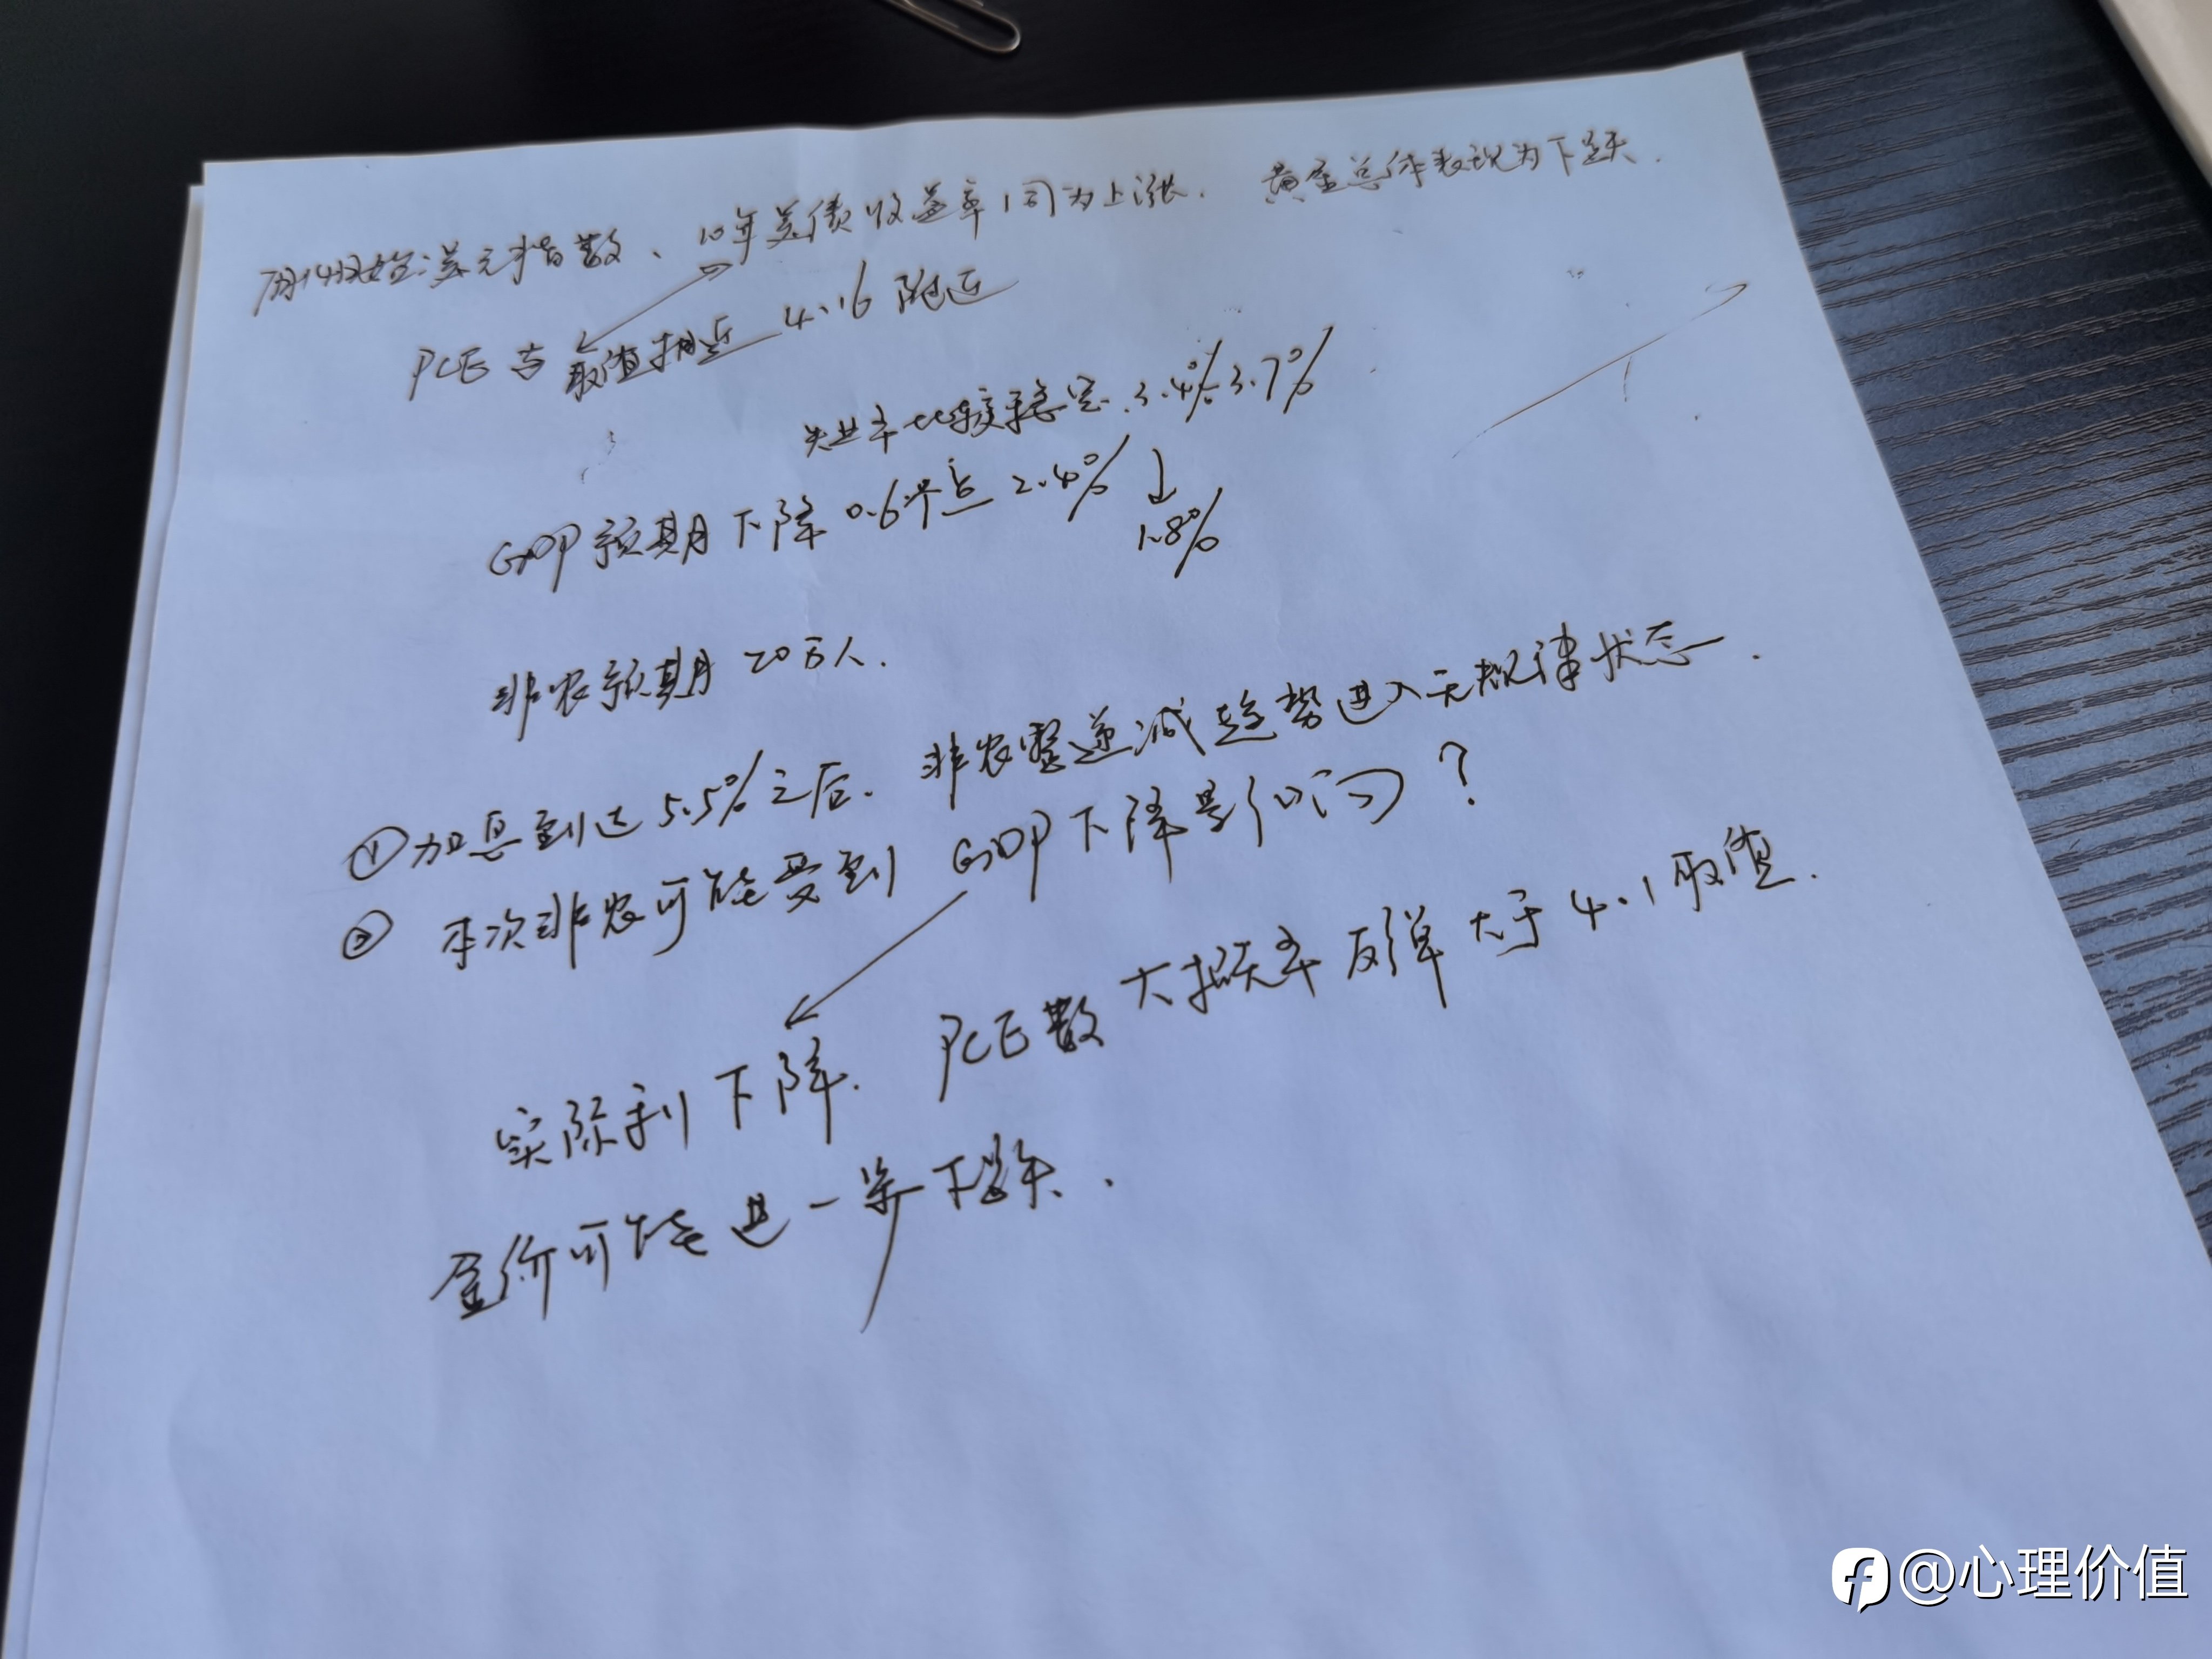 7月14开始:美元指数、10年美债收益率同为上涨. 黄金总体表现为下跌.
PCE与取值相近 4.16附近
失业率比较稳定.3.4%-3.7%
GDP预期下降0.6个点 2.4%↓
1.8%
非农预期20万人.
①加息到达5.5%之后.非农整递减趋势进入无规律状态.
② 本次非农可能受到GDP下降影响?
实际利下降. PCE数大概率反弹大于4.1取值.
金价可能进一步下跌.
@心理价值